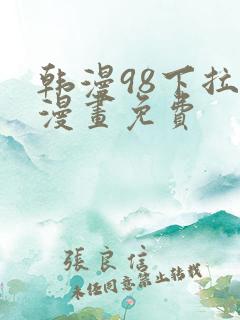 韩漫98下拉
漫畫免費
張良信
未经同意禁止转载